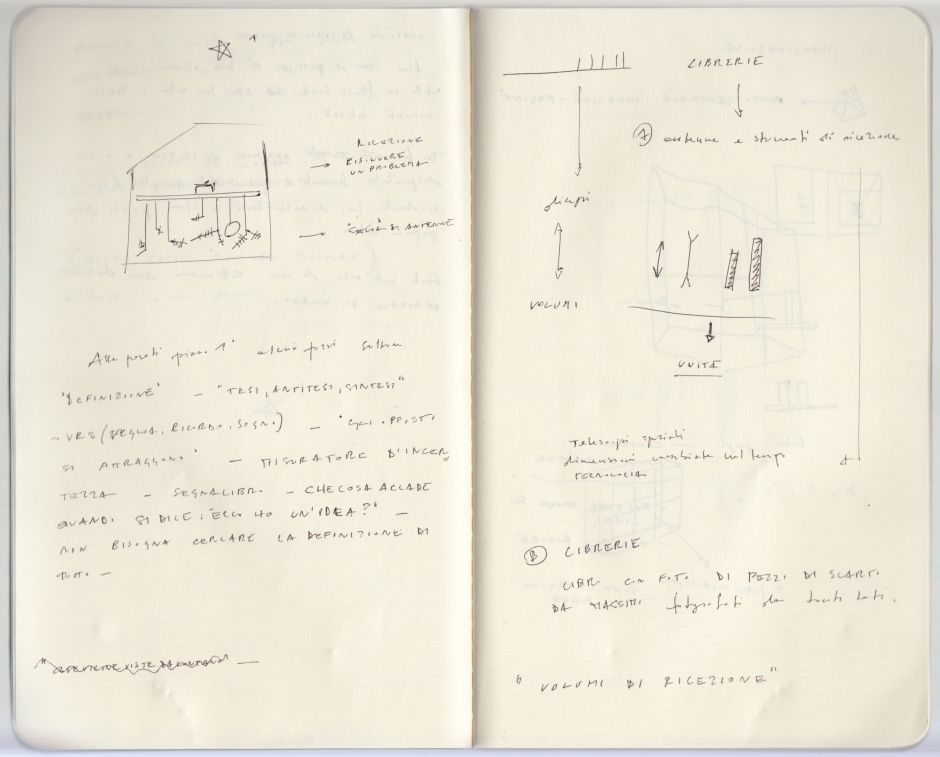 1
RICEZIONE
RISOLVERE
UN PROBLEMA
"CIELO" DI ANTENNE
Alle pareti piano 1° alcuni
"DEFINIZIONE" - "TESI, ANTITESI, SINTESI"
- VRS (VEGLIA, RICORDO, SOGNO) - "GLI OPPOSTI
SI ATTRAGGONO" - MISURATORE D'INCER
TEZZA - SEGNALIBRO - CHE COSA ACCADE
QUANDO SI DICE, "ECCO HO UN'IDEA?" -
NON BISOGNA CERCARE LA DEFINIZIONE DI
TUTTO -
LIBRERIE
antenne e strumenti di ricezione
VOLUMI
UNITÀ
Telescopi spaziali
dimensioni cambiate nel tempo
TECNOLOGIA
B LIBRERIE
LIBRI CON FOTO DI PEZZI DI SCARTO
DA MASSIMO fotografati da tanti lati.
"VOLUMI DI RICEZIONE"